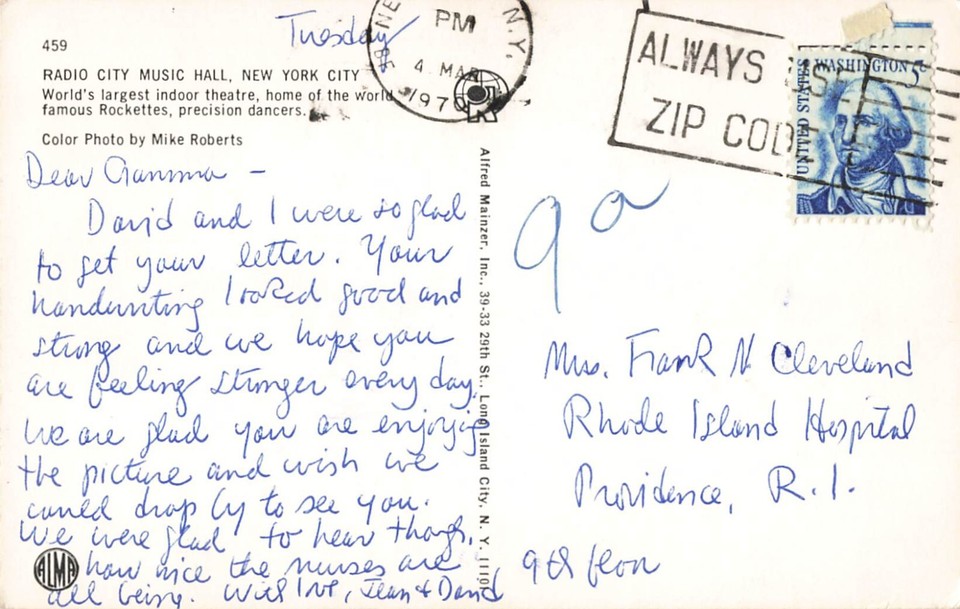 Tuesday
459
RADIO CITY MUSIC HALL, NEW YORK CITY
World's largest indoor theatre, home of the world
famous Rockettes, precision dancers.
Color Photo by Mike Roberts
Dear Gamma –
David and I were so glad
to get your letter. Your
handwriting looked good and
strong and we hope you
are feeling stronger every day.
We are glad you are enjoying
the picture and wish we
could drop by to see you.
We were glad to hear though,
how nice the nurses are
all being. With love, Jean & David
ALMA
Alfred Mainzer, Inc., 39-33 29th St., Long Island City, N. Y. 11101
PM
N.Y.
4 MAR
1970
ALWAYS USE
ZIP CODE
UNITED STATES
WASHINGTON 5c
9a
Mrs. Frank N Cleveland
Rhode Island Hospital
Providence, R.I.
9th floor